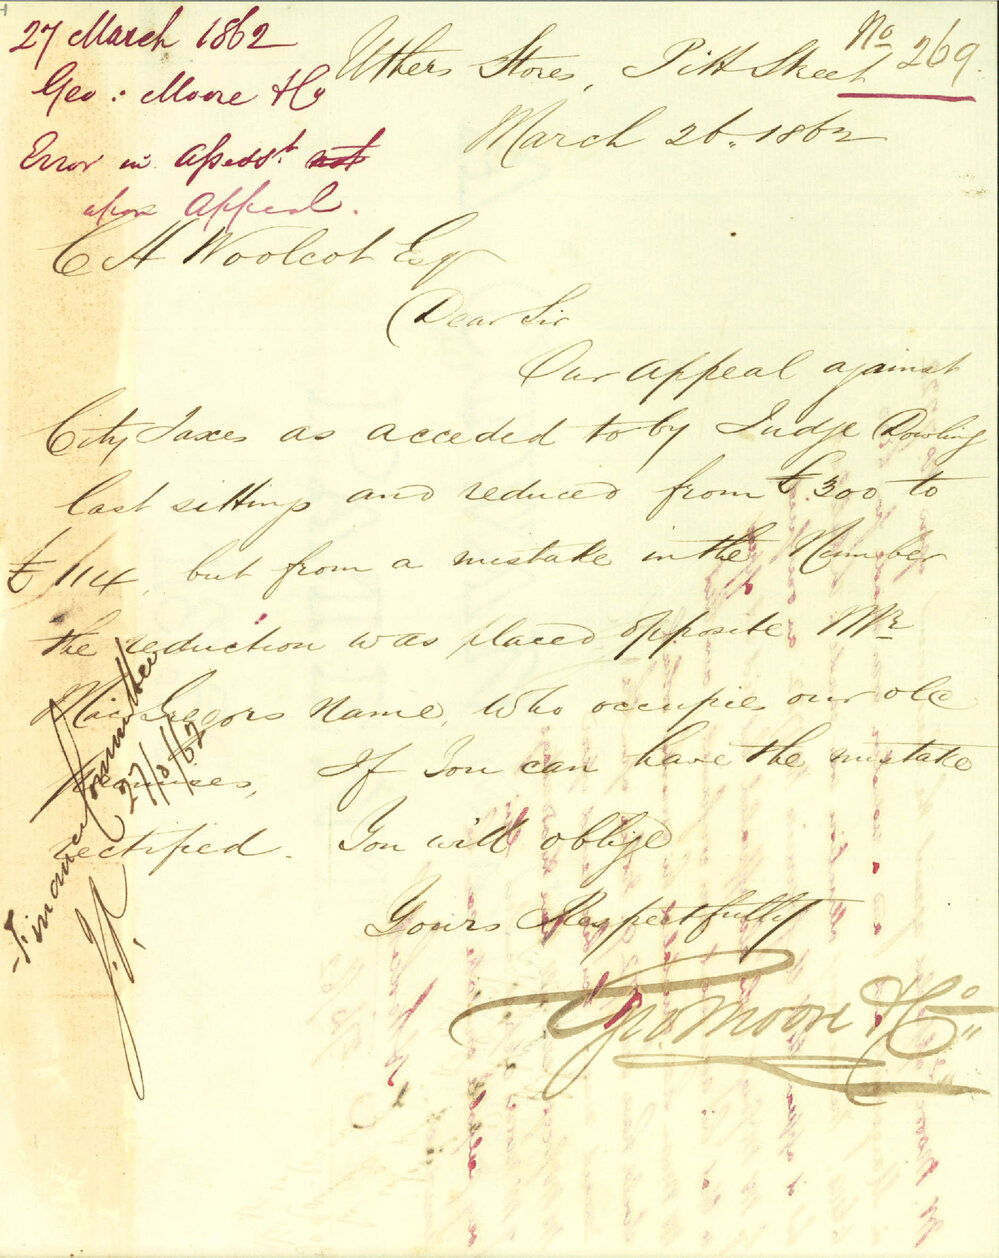 27 March 1862
Geo: Moore & Co
Error in assesst. not
upon appeal.
No 269
Uthers Stores, Pitt Street
March 26. 1862
C H Woolcot Esq
Dear Sir
Our appeal against
City Taxes as acceded to by Judge Dowling
last sitting and reduced from £300 to
£114, but from a mistake in the Number
the reduction was placed opposite Mr
MacGregors name, who occupies our old
Premises, If You can have the mistake
rectified. You will oblige
Yours Respectfully
Geo Moore & Co
Finance Committee
27/3/62